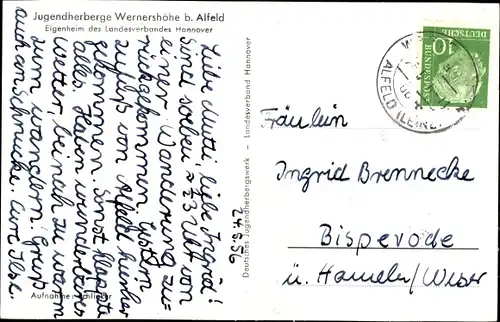 Jugendherberge Wernershöhe b. Alfeld
Eigenheim des Landesverbandes Hannover
Liebe Mutti, liebe Ingrid!
Sind soeben ½3 Uhr von
einer Wanderung zu-
rückgekommen. Gestern
zu Fuß von Alfeld hierher
gekommen. Sonst klappte
alles. Haben wunderbares
Wetter, beinah zu warm
zum wandern. Gruß
auch an Schmucke. Eure Ilse.
Aufnahme:
24.8.56
Deutsches Jugendherbergswerk - Landesverband Hannover
DEUTSCHE
BUNDESPOST
10
ALFELD (LEINE)
Fräulein
Ingrid Brennecke
Bisperode
ü. Hameln/Weser